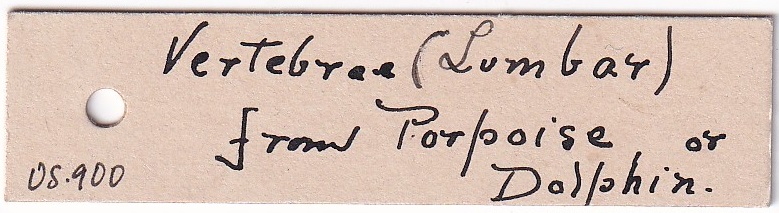 Vertebrae (Lumbar)
from Porpoise or
Dolphin.
OS.900